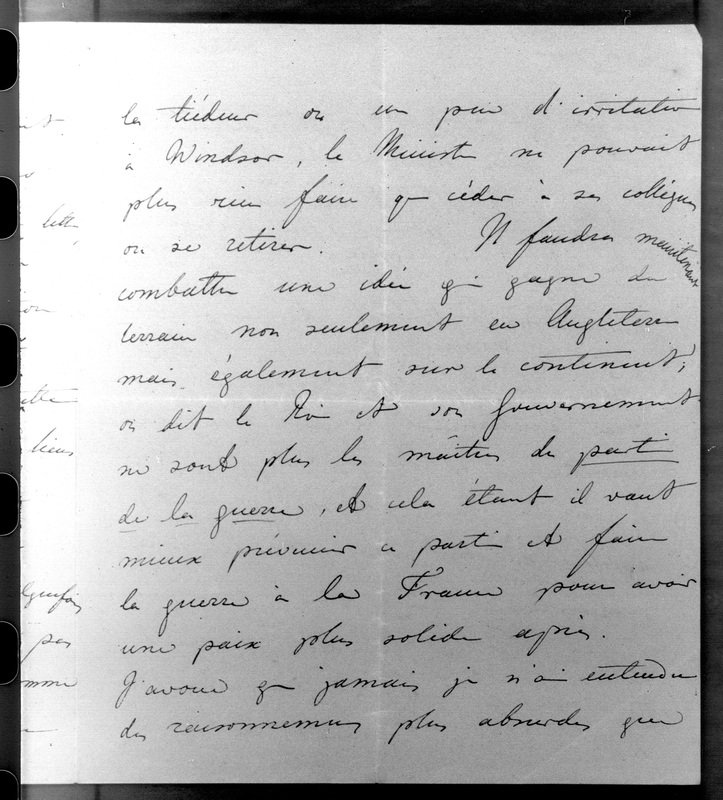 la tiédeur ou un peu d'irritation
à Windsor, le Ministre ne pouvait
plus rien faire que céder à ses collègues
ou se retirer. Il faudra maintenant
combattre une idée qui gagne du
terrain non seulement en Angleterre
mais également sur le continent;
on dit le Roi et son Gouvernement
ne sont plus les maîtres du parti
de la guerre, et cela étant il vaut
mieux prévenir ce parti et faire
la guerre à la France pour avoir
une paix plus solide après.
J'avoue que jamais je n'ai entendu
des raisonnemens plus absurdes que